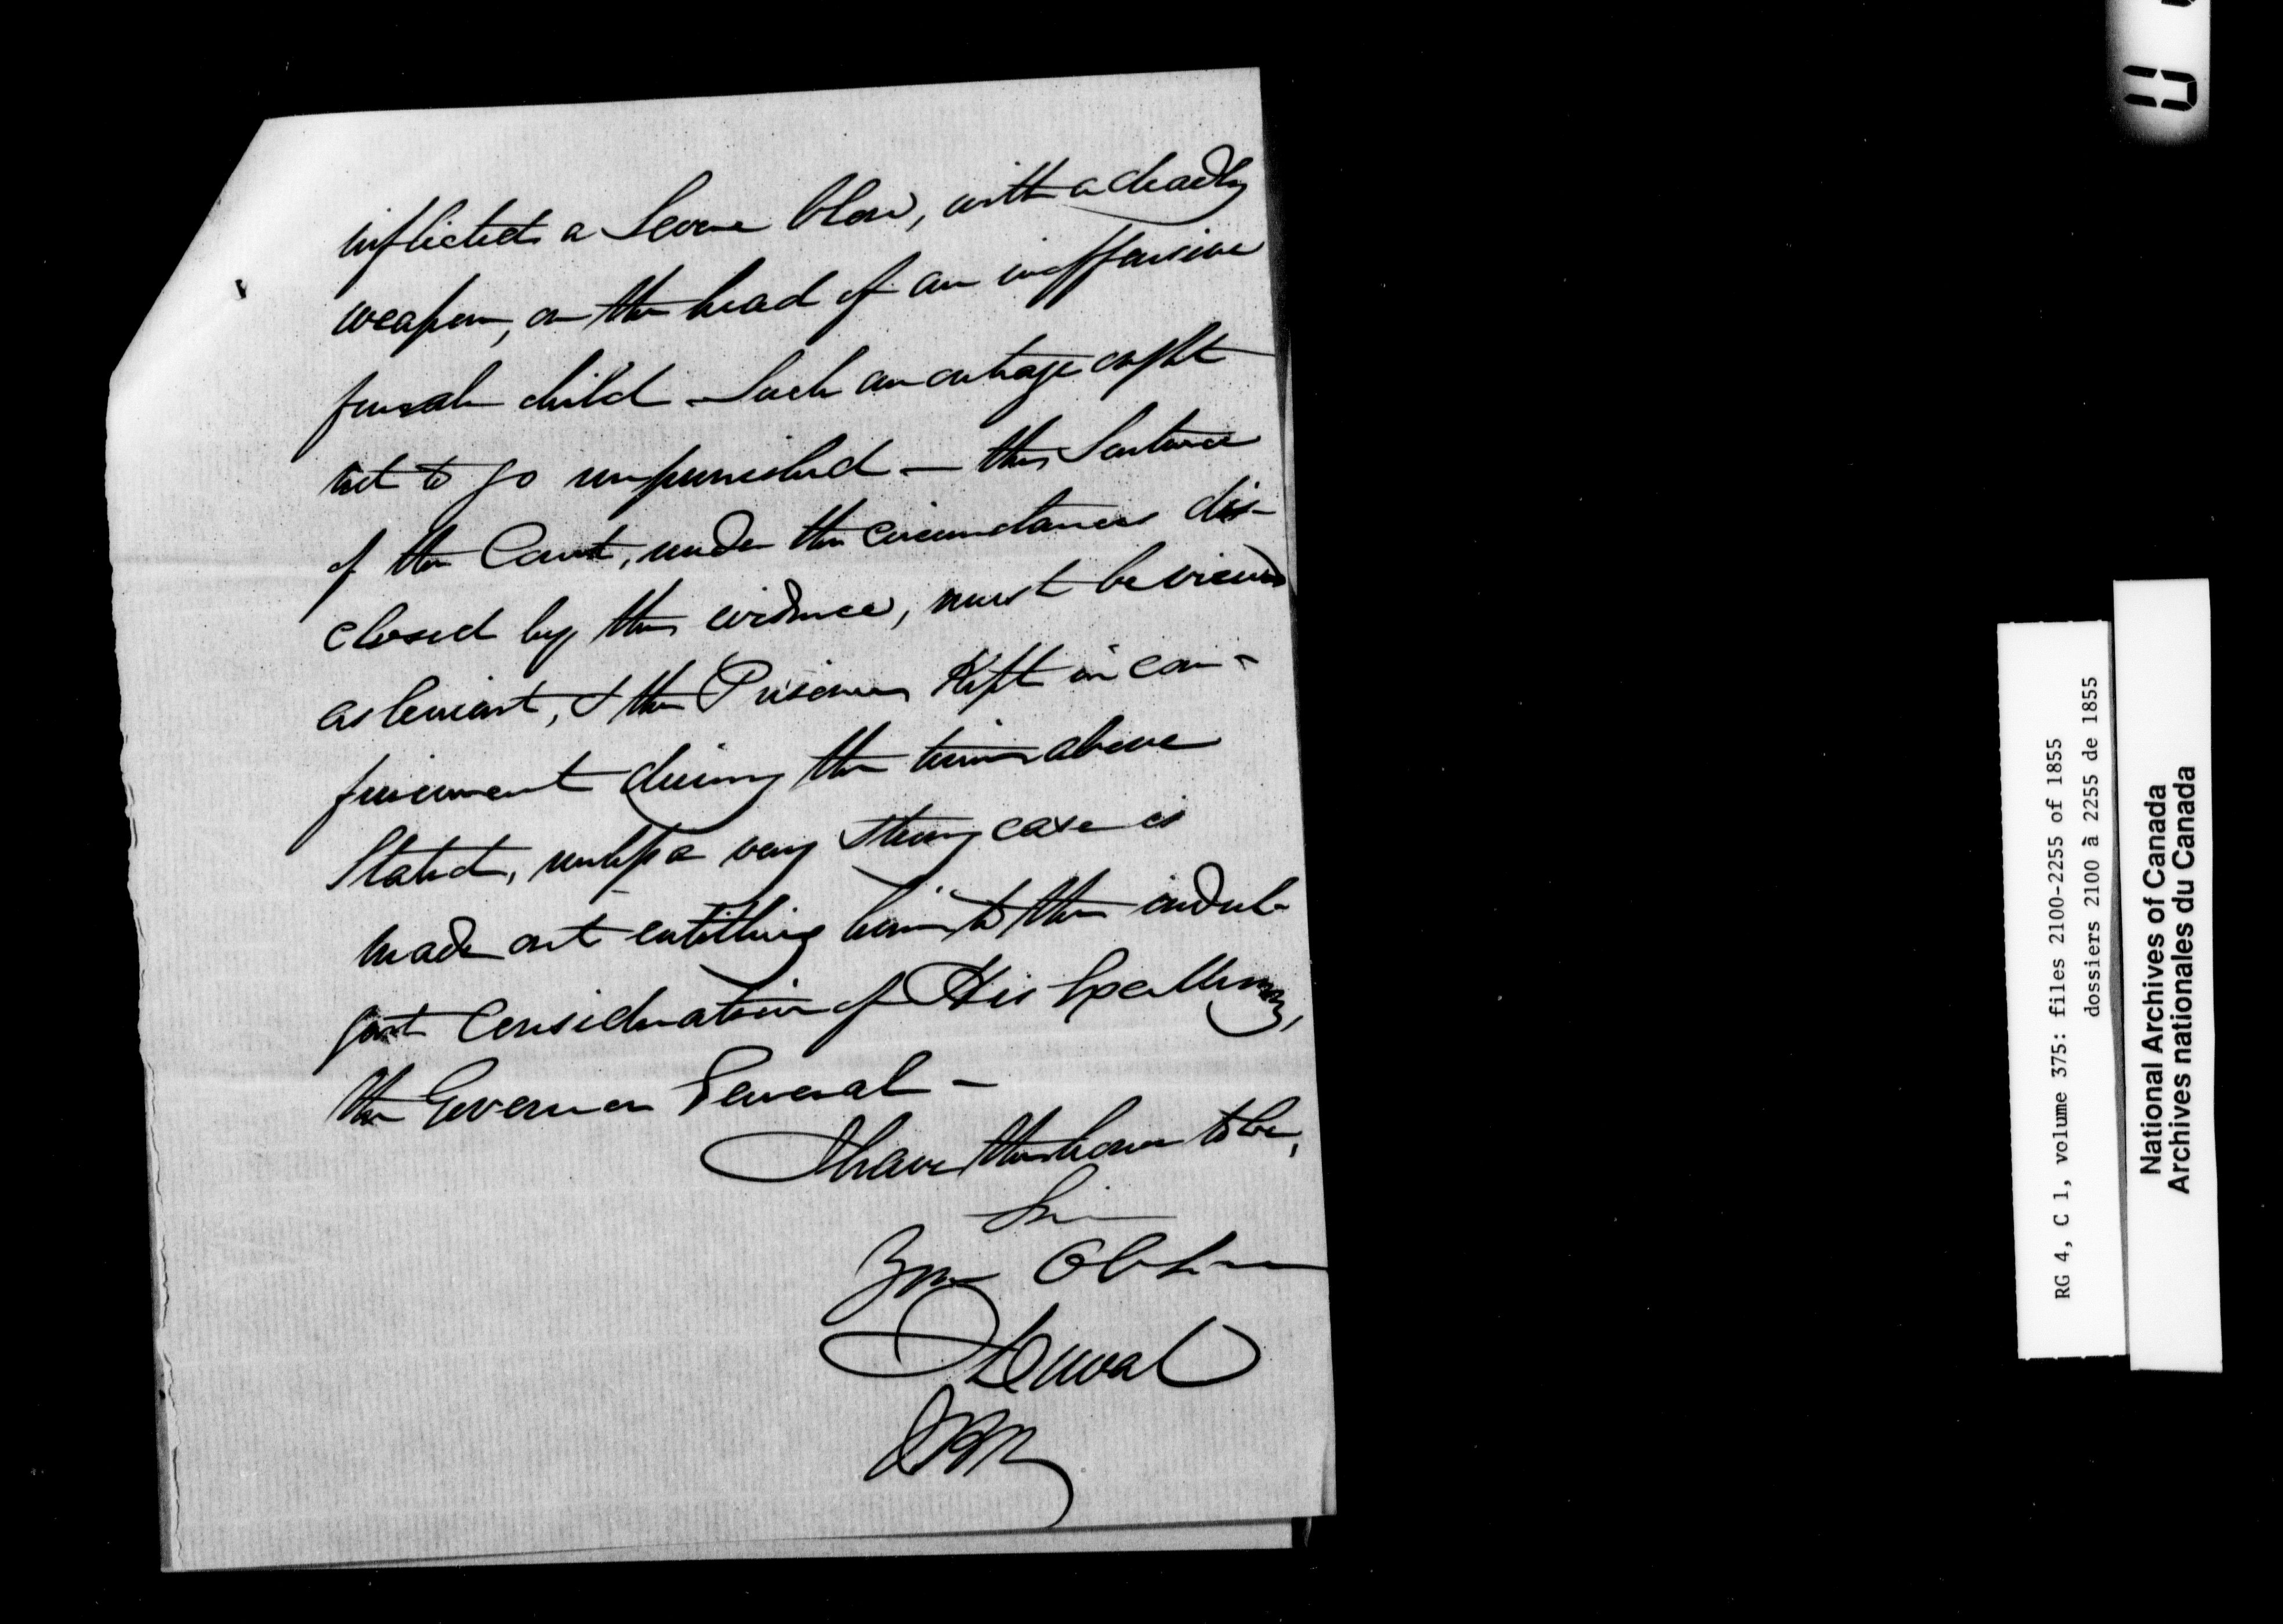 inflicted a severe blow, with a deadly
weapon, on the head of an inoffensive
female child - Such an outrage ought
not to go unpunished — the Sentence
of the Court, under the circumstances dis-
closed by the evidence, must be viewed
as lenient, & the Prisoner Kept in con-
finement during the time above
Stated, unless a very strong case is
made out entitling him to the indul-
gent consideration of His Excellency,
the Governor General -
I have the honor to be,
Sir
Your Obt
Duval
RG 4, C 1, volume 375: files 2100-2255 of 1855
dossiers 2100 à 2255 de 1855
National Archives of Canada
Archives nationales du Canada